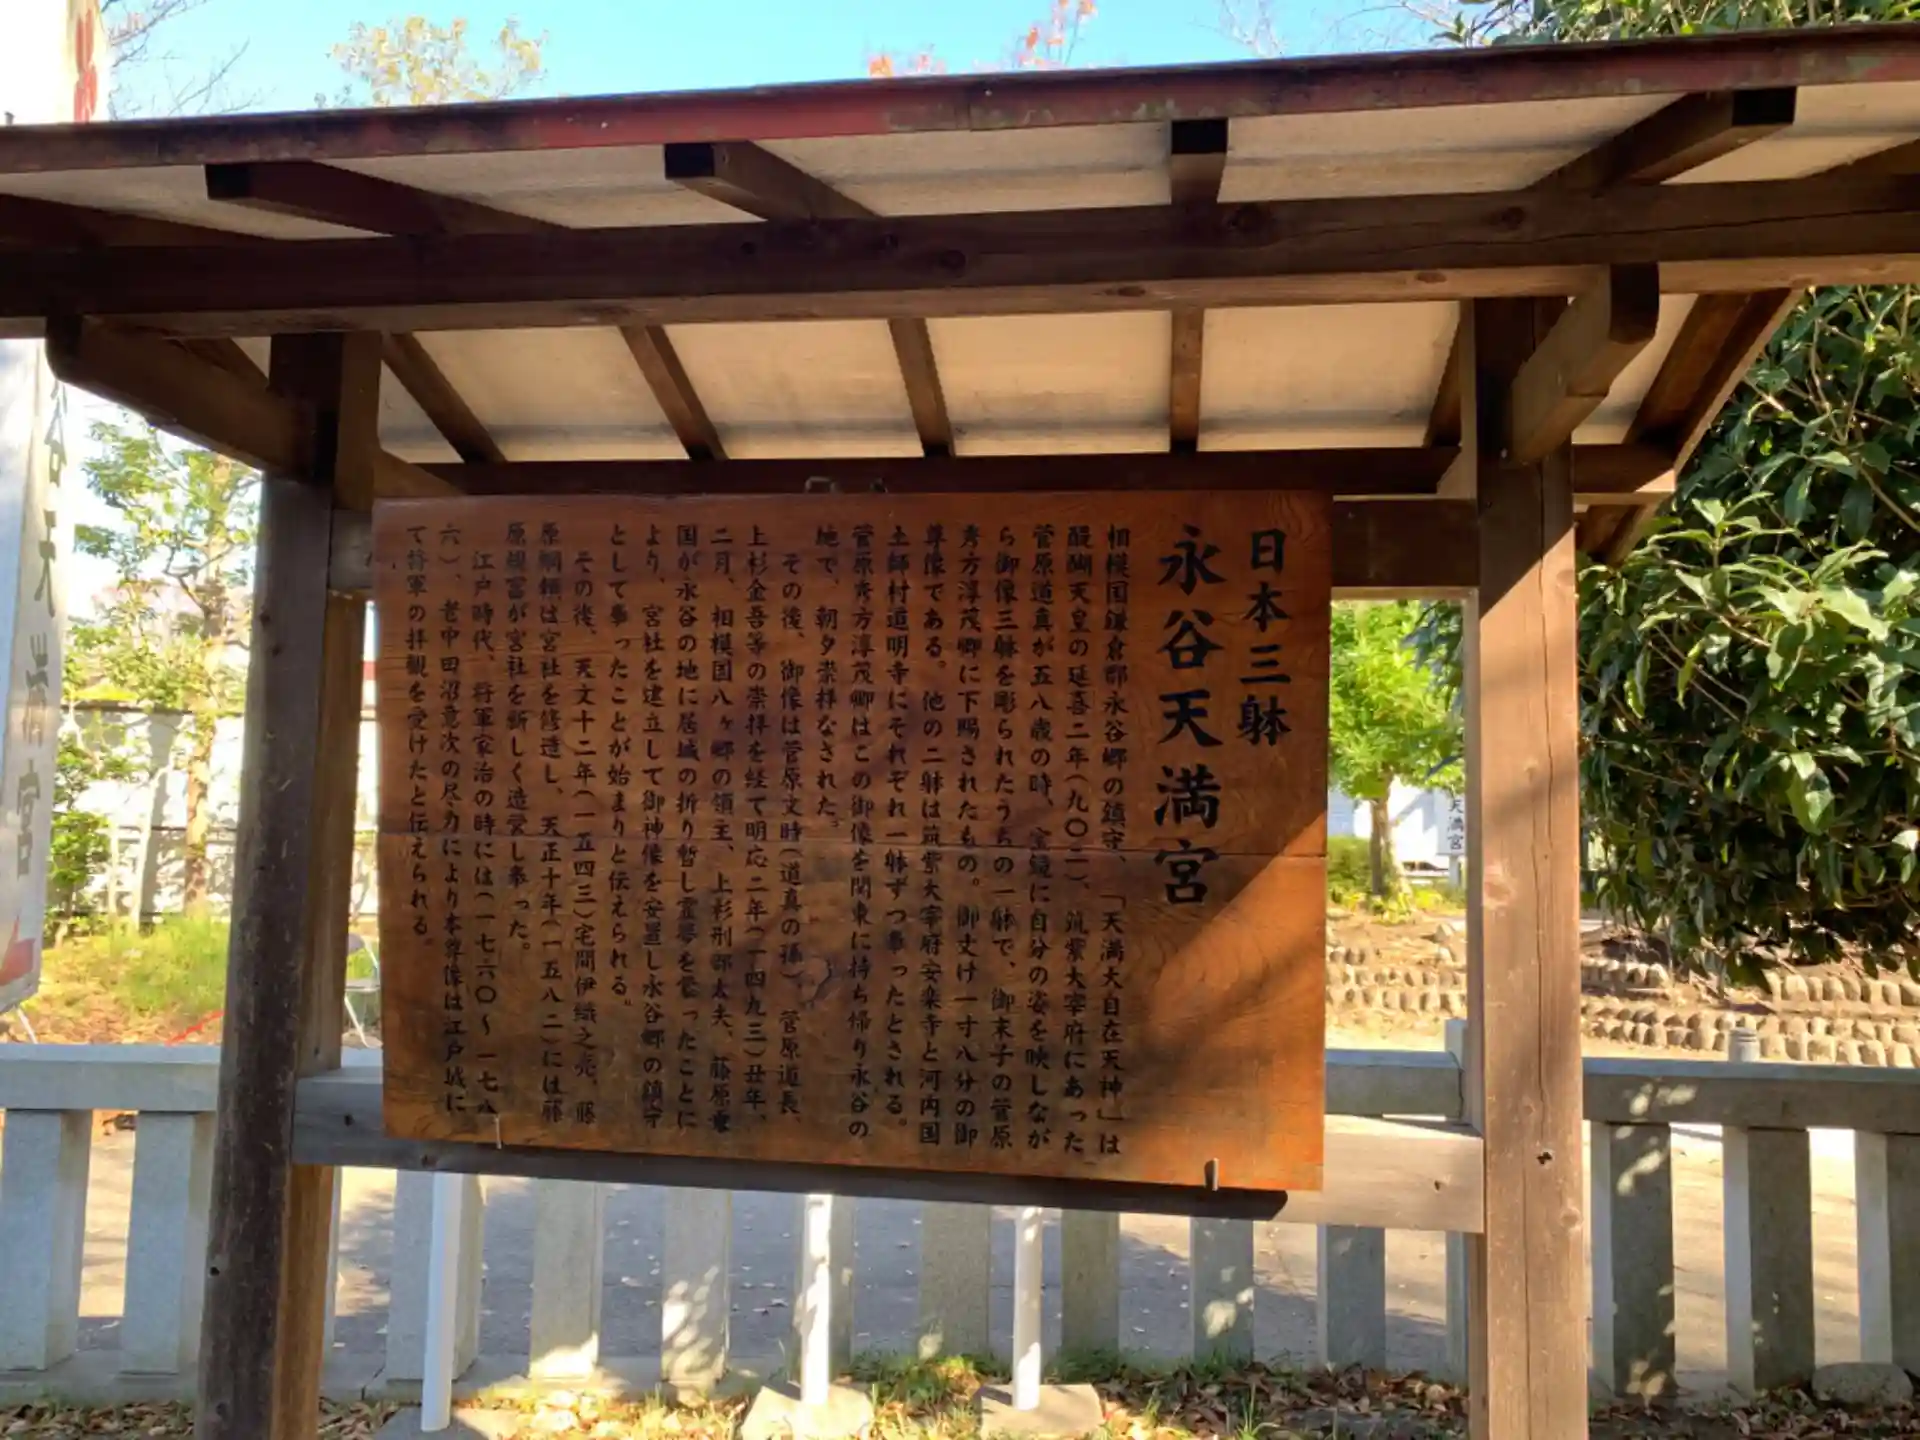 日本三躰
永谷天満宮
相模国鎌倉郡永谷郷の鎮守、「天満大自在天神」は
醍醐天皇の延喜二年(九〇二)、筑紫大宰府にあった
菅原道真が五八歳の時、宝鏡に自分の姿を映しなが
ら御像三躰を彫られたうちの一躰で、御末子の菅原
秀方淳茂卿に下賜されたもの。御丈け一寸八分の御
尊像である。他の二躰は筑紫大宰府安楽寺と河内国
土師村道明寺にそれぞれ一躰ずつ奉ったとされる。
菅原秀方淳茂卿はこの御像を関東に持ち帰り永谷の
地で、朝夕崇拝なされた。
その後、御像は菅原文時(道真の孫)、菅原道長、
上杉金吾等の崇拝を経て明応二年(一四九三)丑年、
二月、相模国八ヶ郷の領主、上杉刑部太夫、藤原乗
国が永谷の地に居城の折り暫し霊夢を蒙ったことに
より、宮社を建立して御神像を安置し永谷郷の鎮守
として奉ったことが始まりと伝えられる。
その後、天文十二年(一五四三)宅間伊織之亮、藤
原綱頼は宮社を修造し、天正十年(一五八二)には藤
原規冨が宮社を新しく造営し奉った。
江戸時代、将軍家治の時には(一七六〇～一七八
六)、老中田沼意次の尽力により本尊像は江戸城に
て将軍の拝観を受けたと伝えられる。
谷天満宮
天満宮